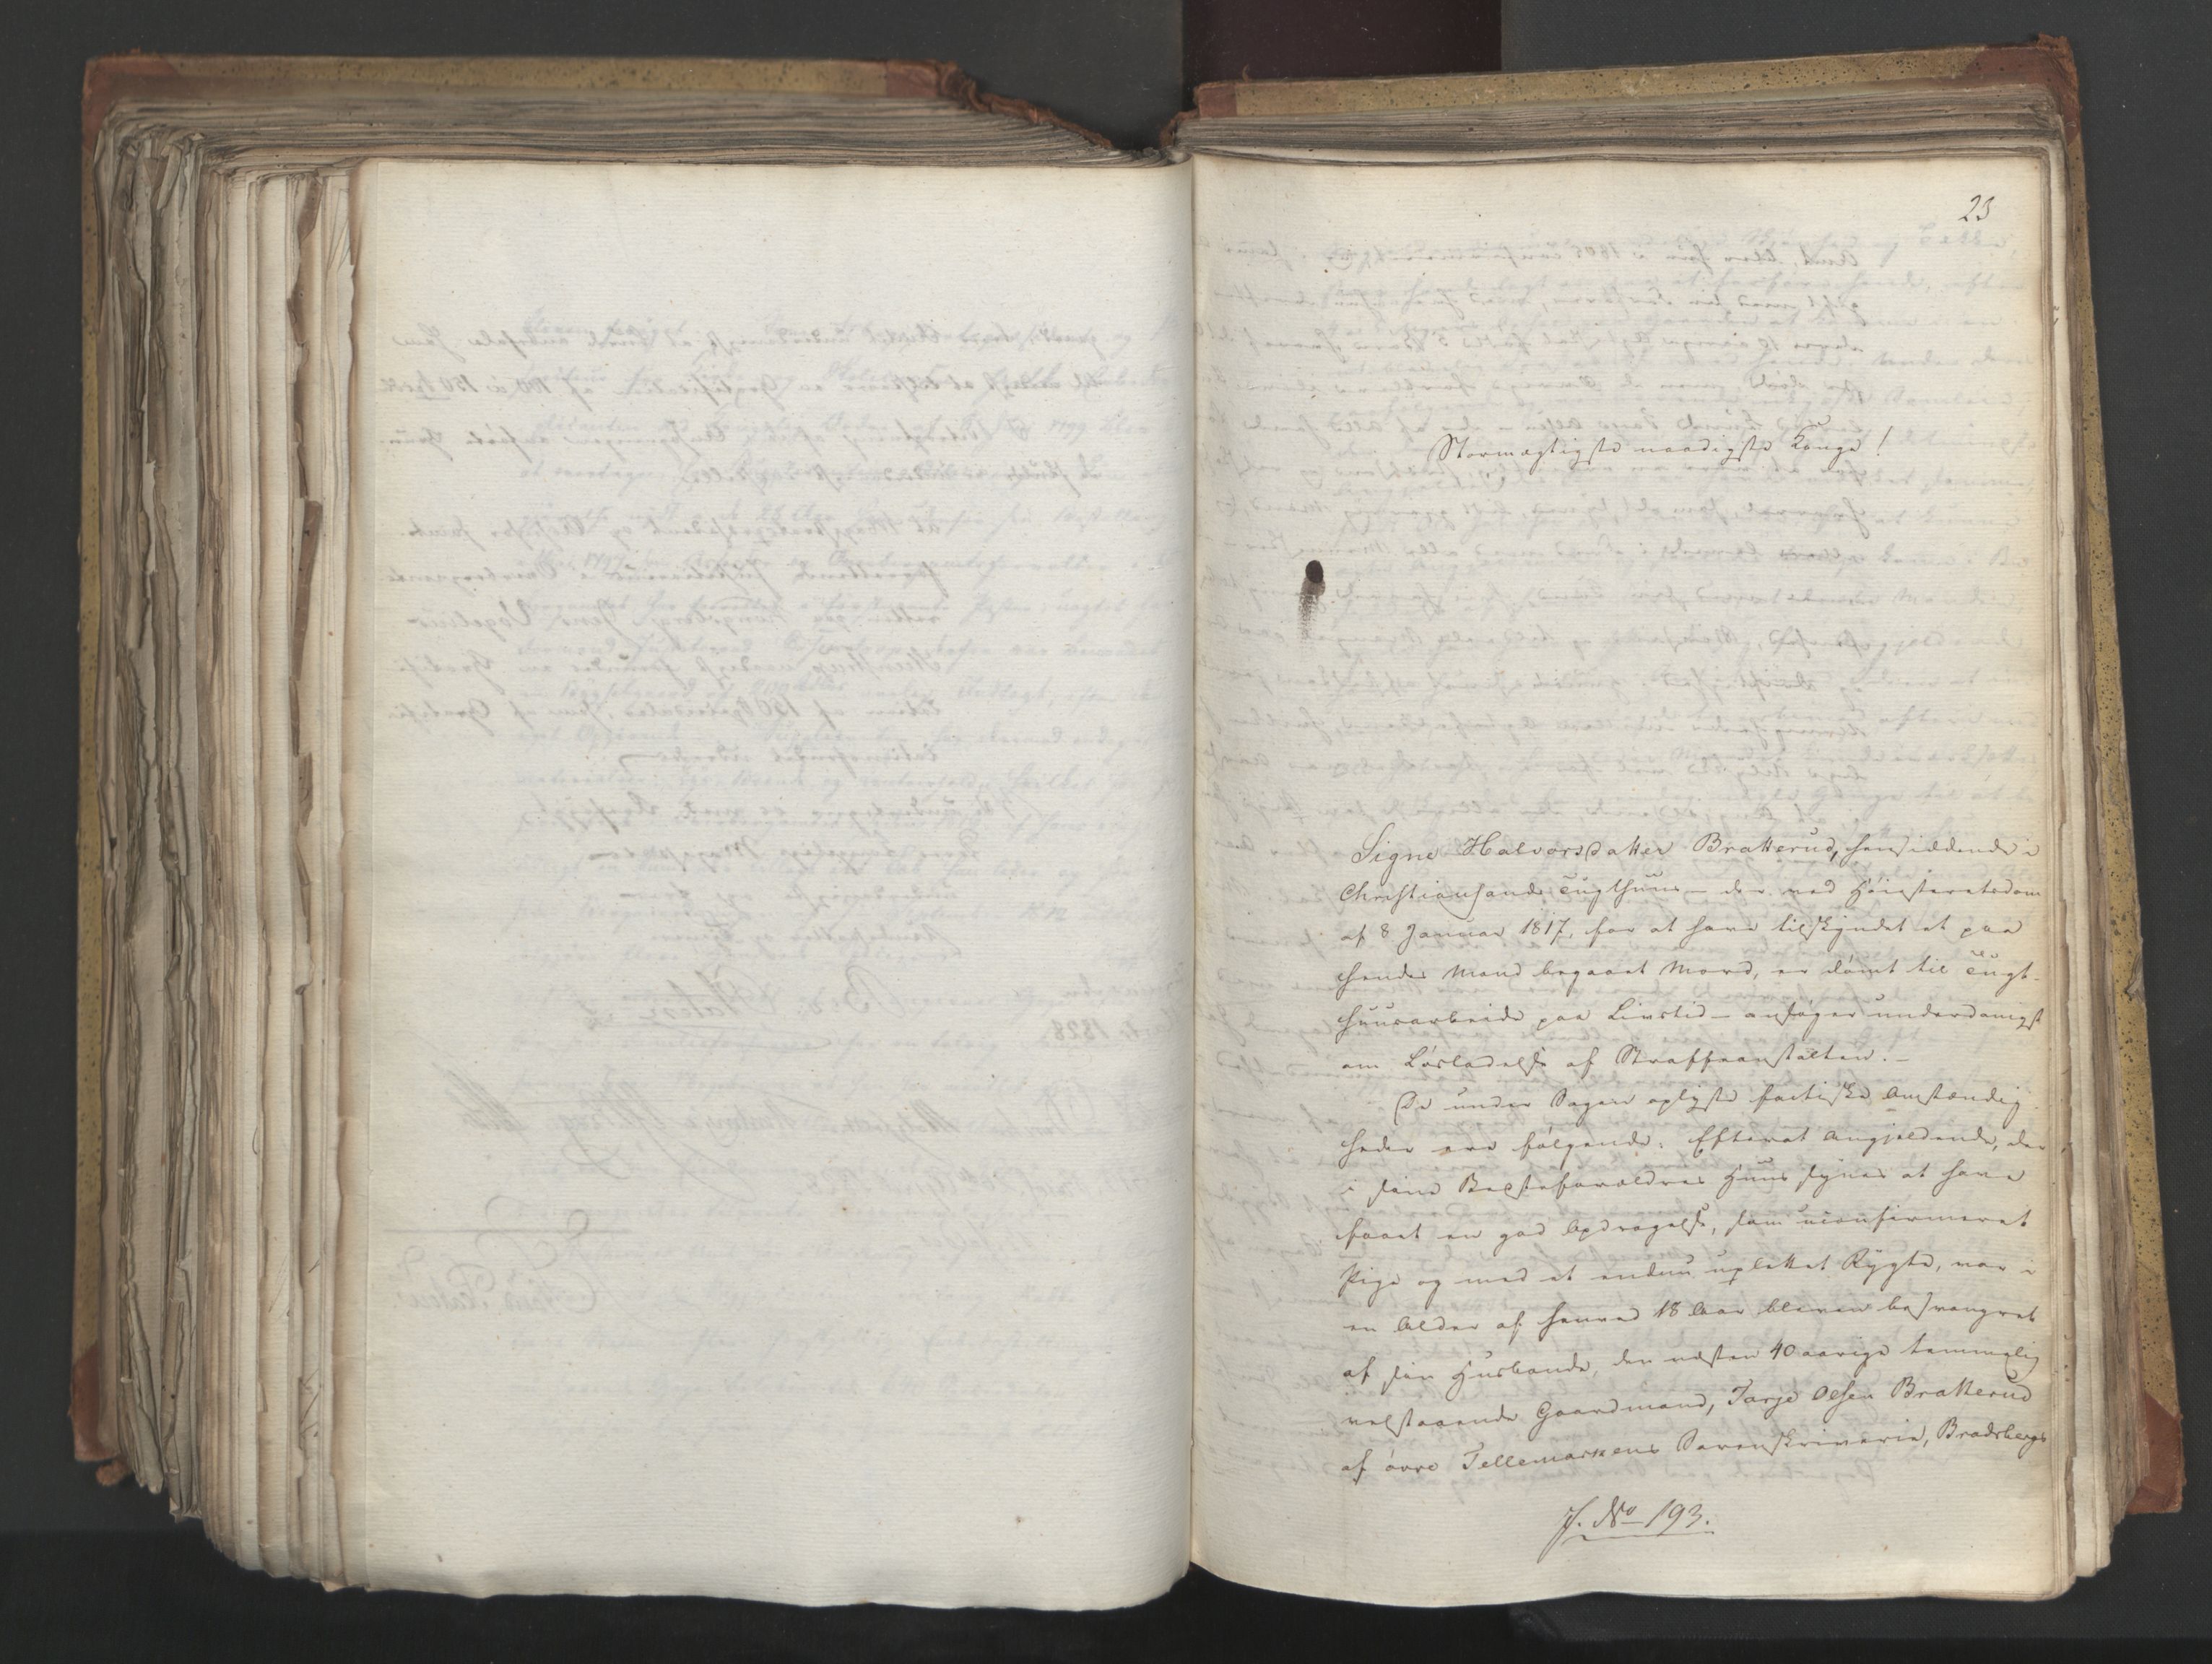 23
Stormægtigste naadigste Konge!
Signe Halvorsdatter Bratterud, hensiddende i
Christiansands Tugthuus – der ved Høiesteretsdom
af 8 Januar 1817, for at have tilskyndet et paa
hendes Mand begaaet Mord, er dømt til Tugt-
huusarbeide paa Livstid – ansøger underdanigst
om Løsladelse af Straffeanstalten. –
De under Sagen oplyste factiske Omstændig-
heder ere følgende: Efterat Angjeldende, der
i sine Bedsteforældres Huus synes at have
faaet en god Opdragelse, som uconfirmeret
Pige og med et endnu uplettet Rygte, var i
en Alder af henved 18 Aar bleven besvangret
af sin Husbonde, den næsten 40 aarige temmelig
velstaaende Gaardmand, Tarje Olsen Bratterud
af øvre Tellemarkens Sorenskriverie, Bradsbergs
J. No 193.